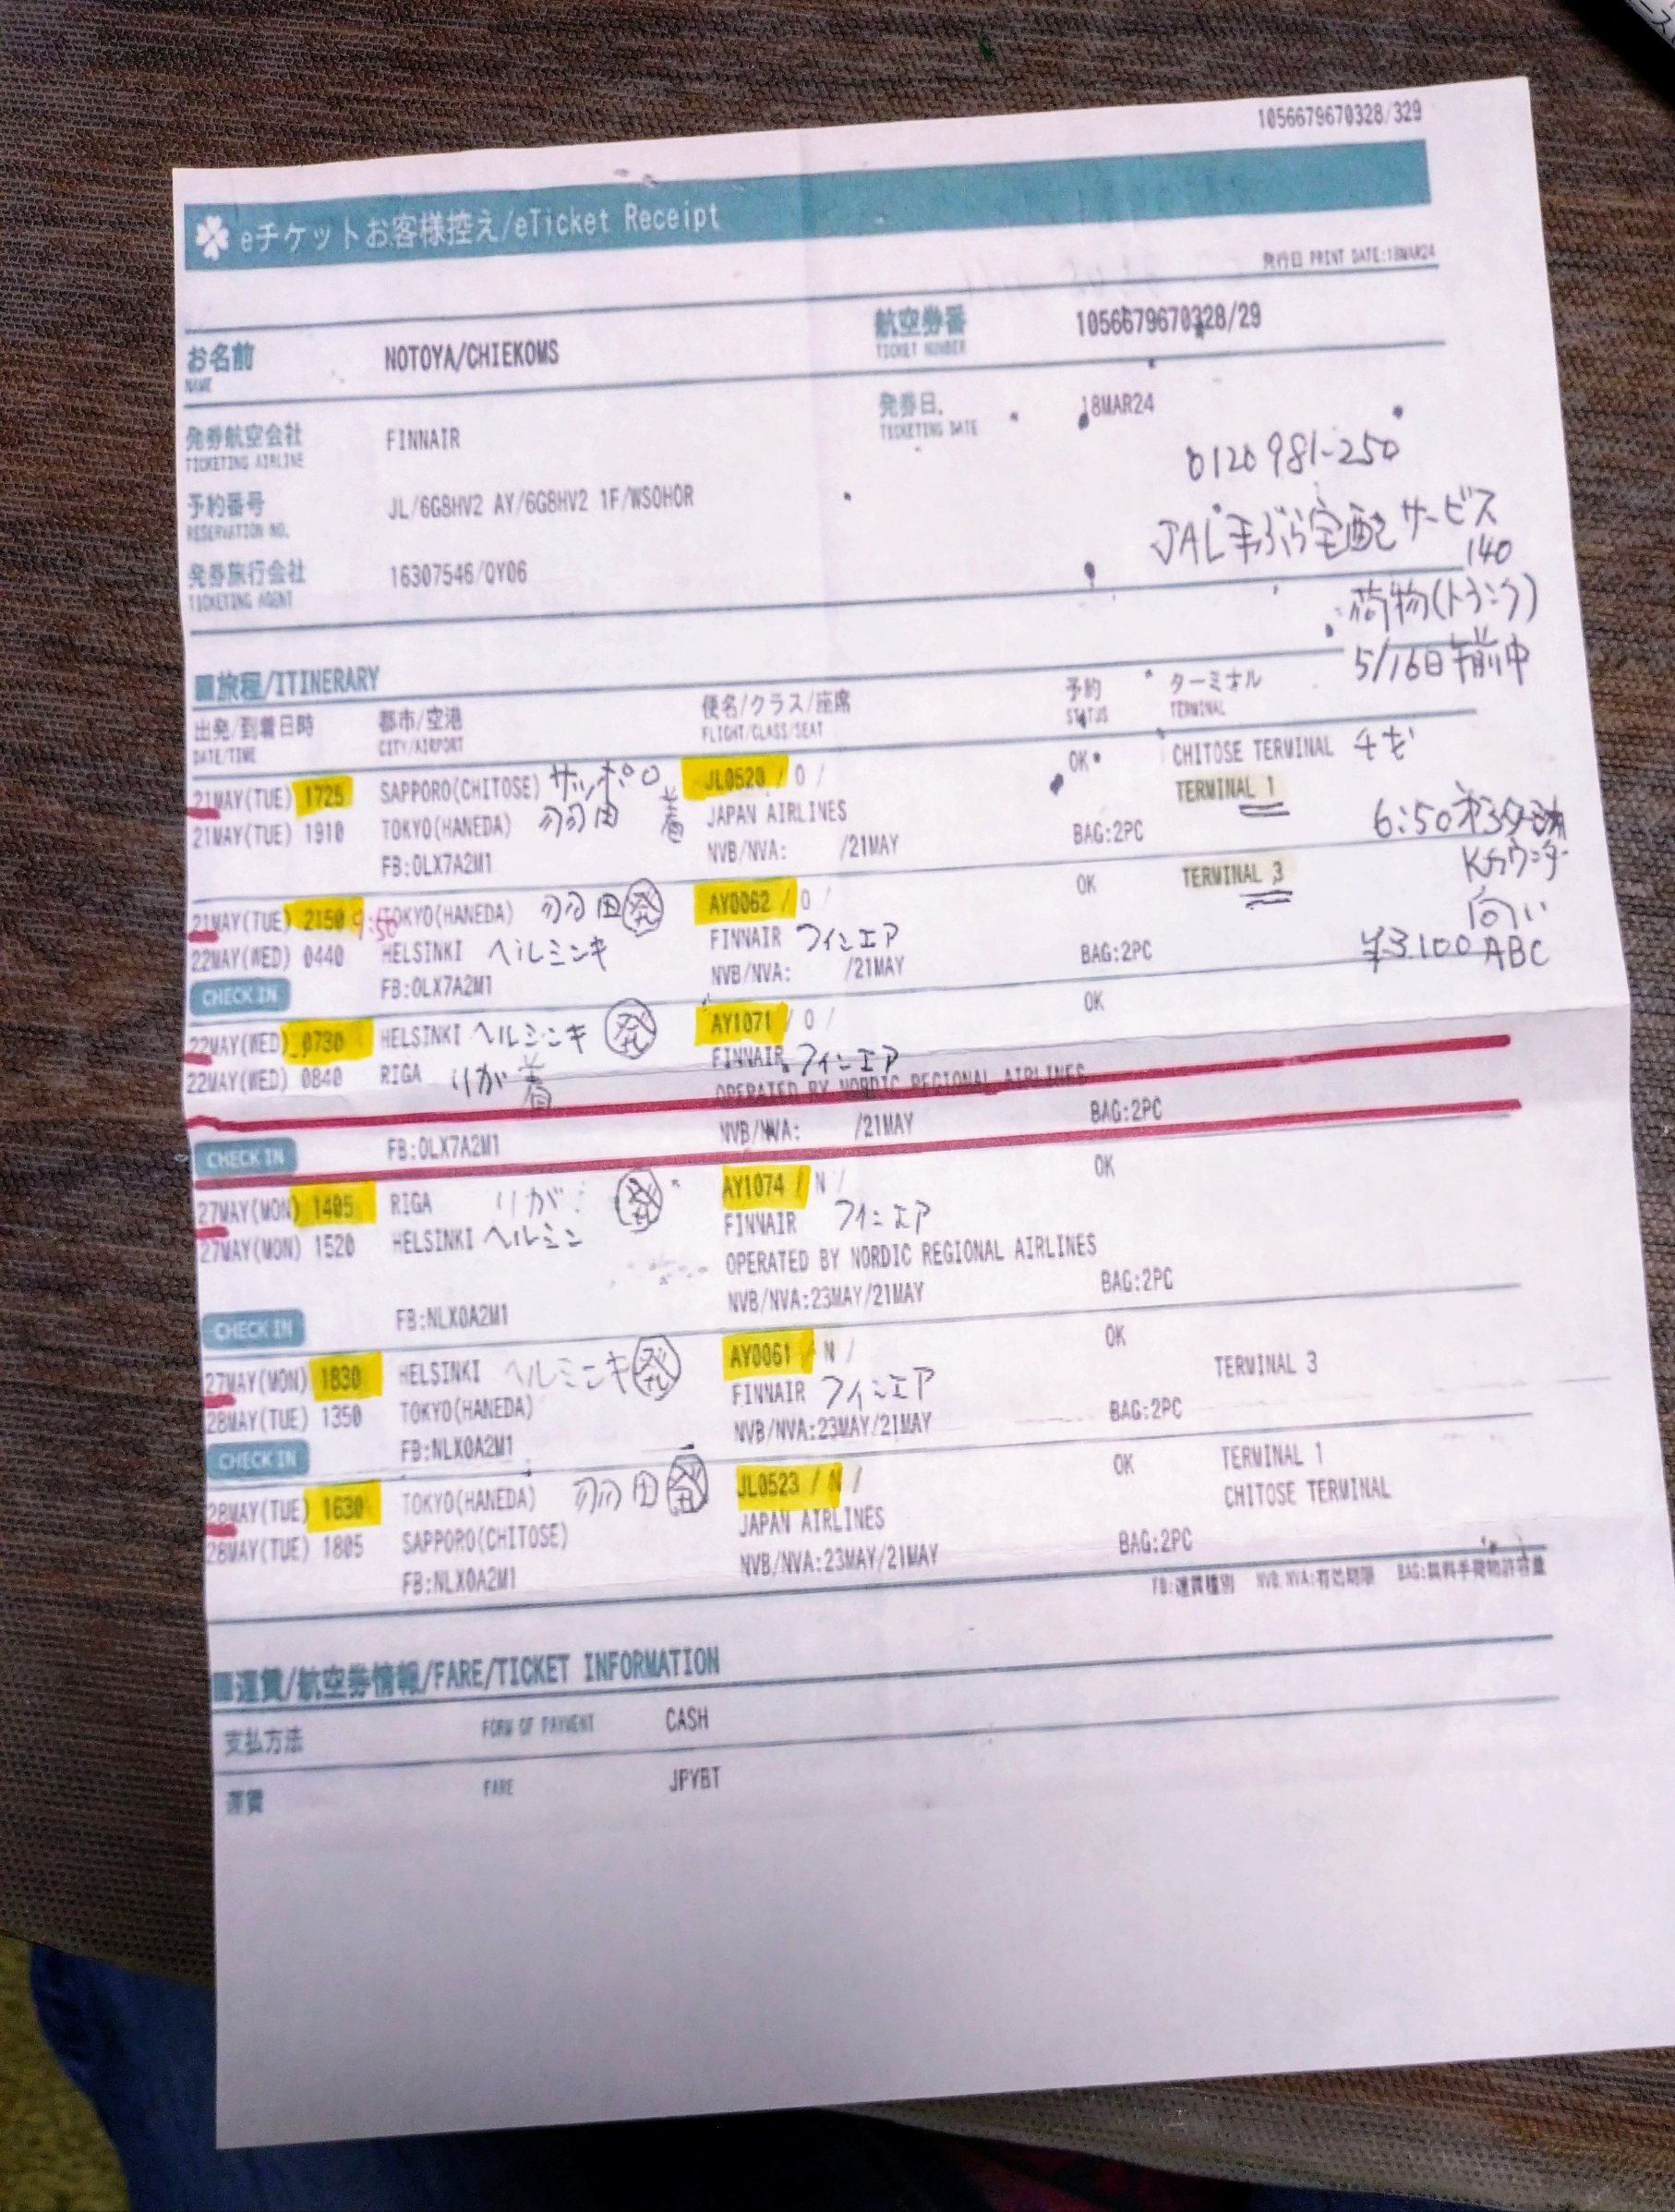 1056679670328/329
eチケットお客様控え/eTicket Receipt
発行日 PRINT DATE:18MAR24
お名前 NOTOYA/CHIEKOMS 航空券番 1056679670328/29
NAME TICKET NUMBER
発券航空会社 FINNAIR 発券日. 18MAR24
TICKETING AIRLINE TICKETING DATE
0120 981-250
予約番号 JL/6G8HV2 AY/6G8HV2 1F/WSOHOR
RESERVATION NO.
JAL手ぶら宅配サービス
140
発券旅行会社 16307546/QY06
TICKETING AGENT
荷物(トランク)
5/16日午前中
■旅程/ITINERARY
出発/到着日時 都市/空港 便名/クラス/座席 予約 ターミナル
DATE/TIME CITY/AIRPORT FLIGHT/CLASS/SEAT STATUS TERMINAL
21MAY(TUE) 1725 SAPPORO(CHITOSE) サッポロ JL0520 / O / OK CHITOSE TERMINAL チト
21MAY(TUE) 1910 TOKYO(HANEDA) 羽田 着 JAPAN AIRLINES TERMINAL 1
FB:OLX7A2M1 NVB/NVA: /21MAY BAG:2PC
6:50
Kカウンター
向い
¥3.100 ABC
21MAY(TUE) 2150 9:50 TOKYO(HANEDA) 羽田 発 AY0062 / O / OK TERMINAL 3
22MAY(WED) 0440 HELSINKI ヘルシンキ FINNAIR フィンエア
CHECK IN FB:OLX7A2M1 NVB/NVA: /21MAY BAG:2PC
22MAY(WED) 0730 HELSINKI ヘルシンキ 発 AY1071 / O / OK
22MAY(WED) 0840 RIGA リガ 着 FINNAIR フィンエア
OPERATED BY NORDIC REGIONAL AIRLINES
CHECK IN FB:OLX7A2M1 NVB/NVA: /21MAY BAG:2PC
27MAY(MON) 1405 RIGA リガ 発 AY1074 / N / OK
27MAY(MON) 1520 HELSINKI ヘルシン FINNAIR フィンエア
OPERATED BY NORDIC REGIONAL AIRLINES
CHECK IN FB:NLX0A2M1 NVB/NVA:23MAY/21MAY BAG:2PC
27MAY(MON) 1830 HELSINKI ヘルシンキ 発 AY0061 / N / OK
28MAY(TUE) 1350 TOKYO(HANEDA) FINNAIR フィンエア TERMINAL 3
CHECK IN FB:NLX0A2M1 NVB/NVA:23MAY/21MAY BAG:2PC
28MAY(TUE) 1630 TOKYO(HANEDA) 羽田 発 JL0523 / N / OK TERMINAL 1
28MAY(TUE) 1805 SAPPORO(CHITOSE) JAPAN AIRLINES CHITOSE TERMINAL
FB:NLX0A2M1 NVB/NVA:23MAY/21MAY BAG:2PC
FB:運賃種別 NVB NVA:有効期限 BAG:無料手荷物許容量
■運賃/航空券情報/FARE/TICKET INFORMATION
支払方法 FORM OF PAYMENT CASH
運賃 FARE JPYBT